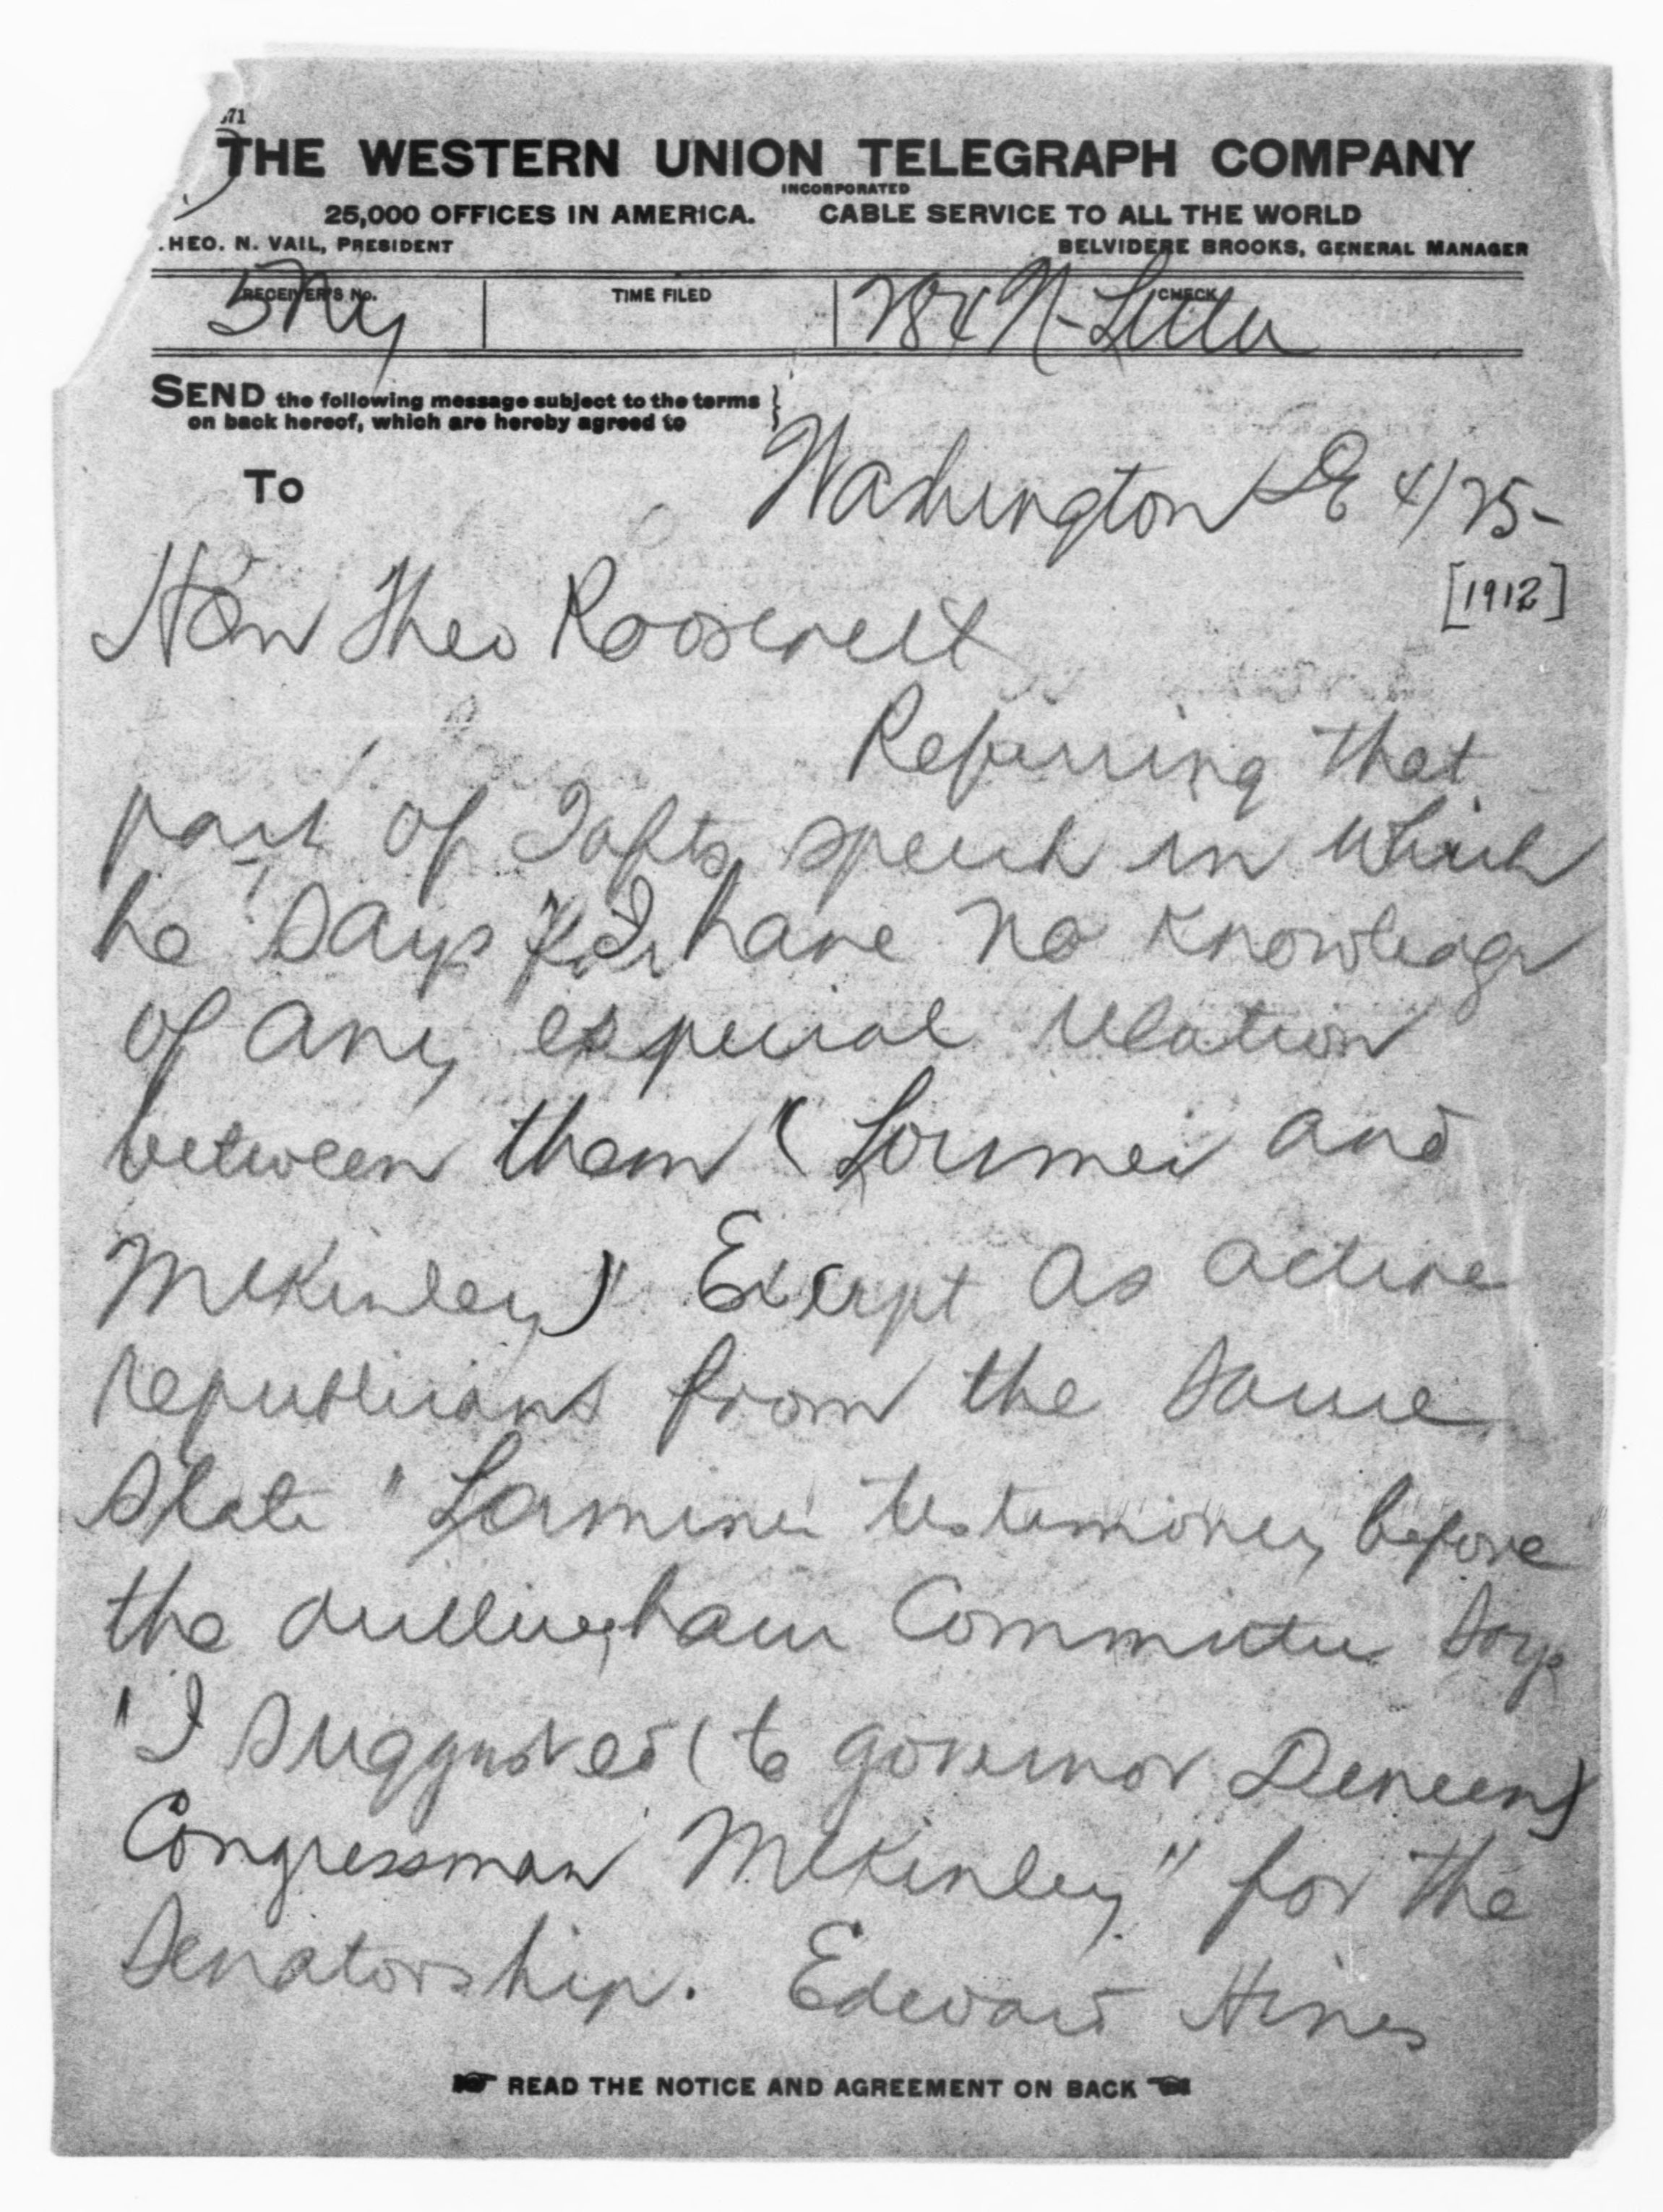 71
THE WESTERN UNION TELEGRAPH COMPANY
INCORPORATED
25,000 OFFICES IN AMERICA. CABLE SERVICE TO ALL THE WORLD
.HEO. N. VAIL, PRESIDENT BELVIDERE BROOKS, GENERAL MANAGER
RECEIVER'S No. TIME FILED CHECK
5 Ny 284 N- Letter
SEND the following message subject to the terms
on back hereof, which are hereby agreed to
To
Washington DC 4/25-
[1912]
Hon Theo Roosevelt
Referring that
part of Tafts speech in which
he says I have no knowledge
of any especial relation
between them" (Lorimer and
McKinley)" Except as active
republicans from the same
State" Lorimer testimony before
the dillingham Committee says
"I suggested (to governor Deneen)
Congressman McKinley" for the
Senatorship. Edward Hines
READ THE NOTICE AND AGREEMENT ON BACK